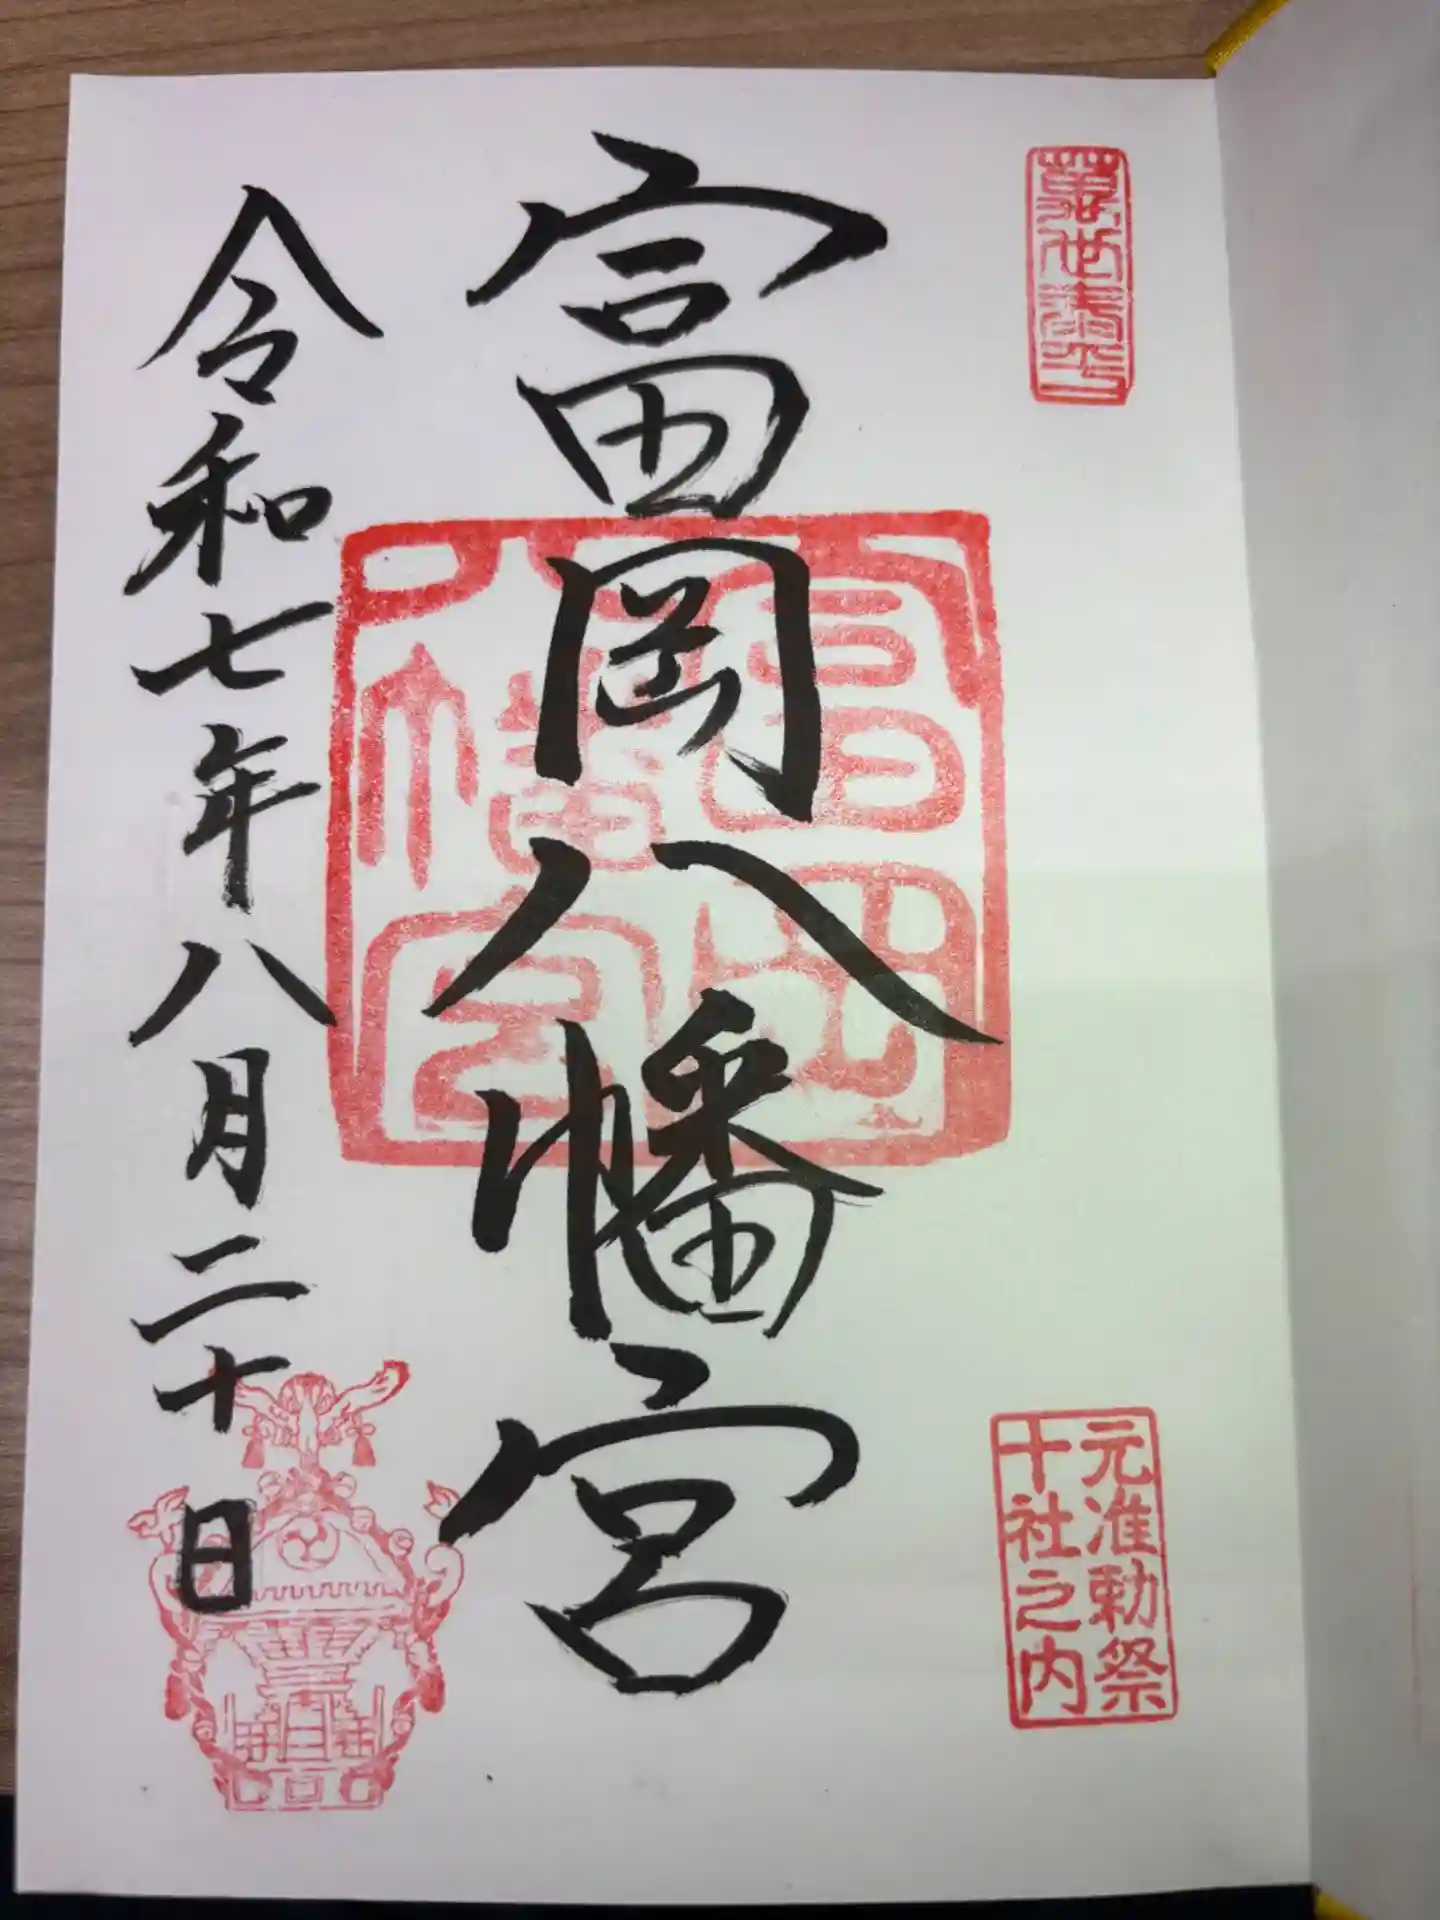 富岡八幡宮
令和七年八月二十日
元准勅祭
十社之内
富岡
八幡宮